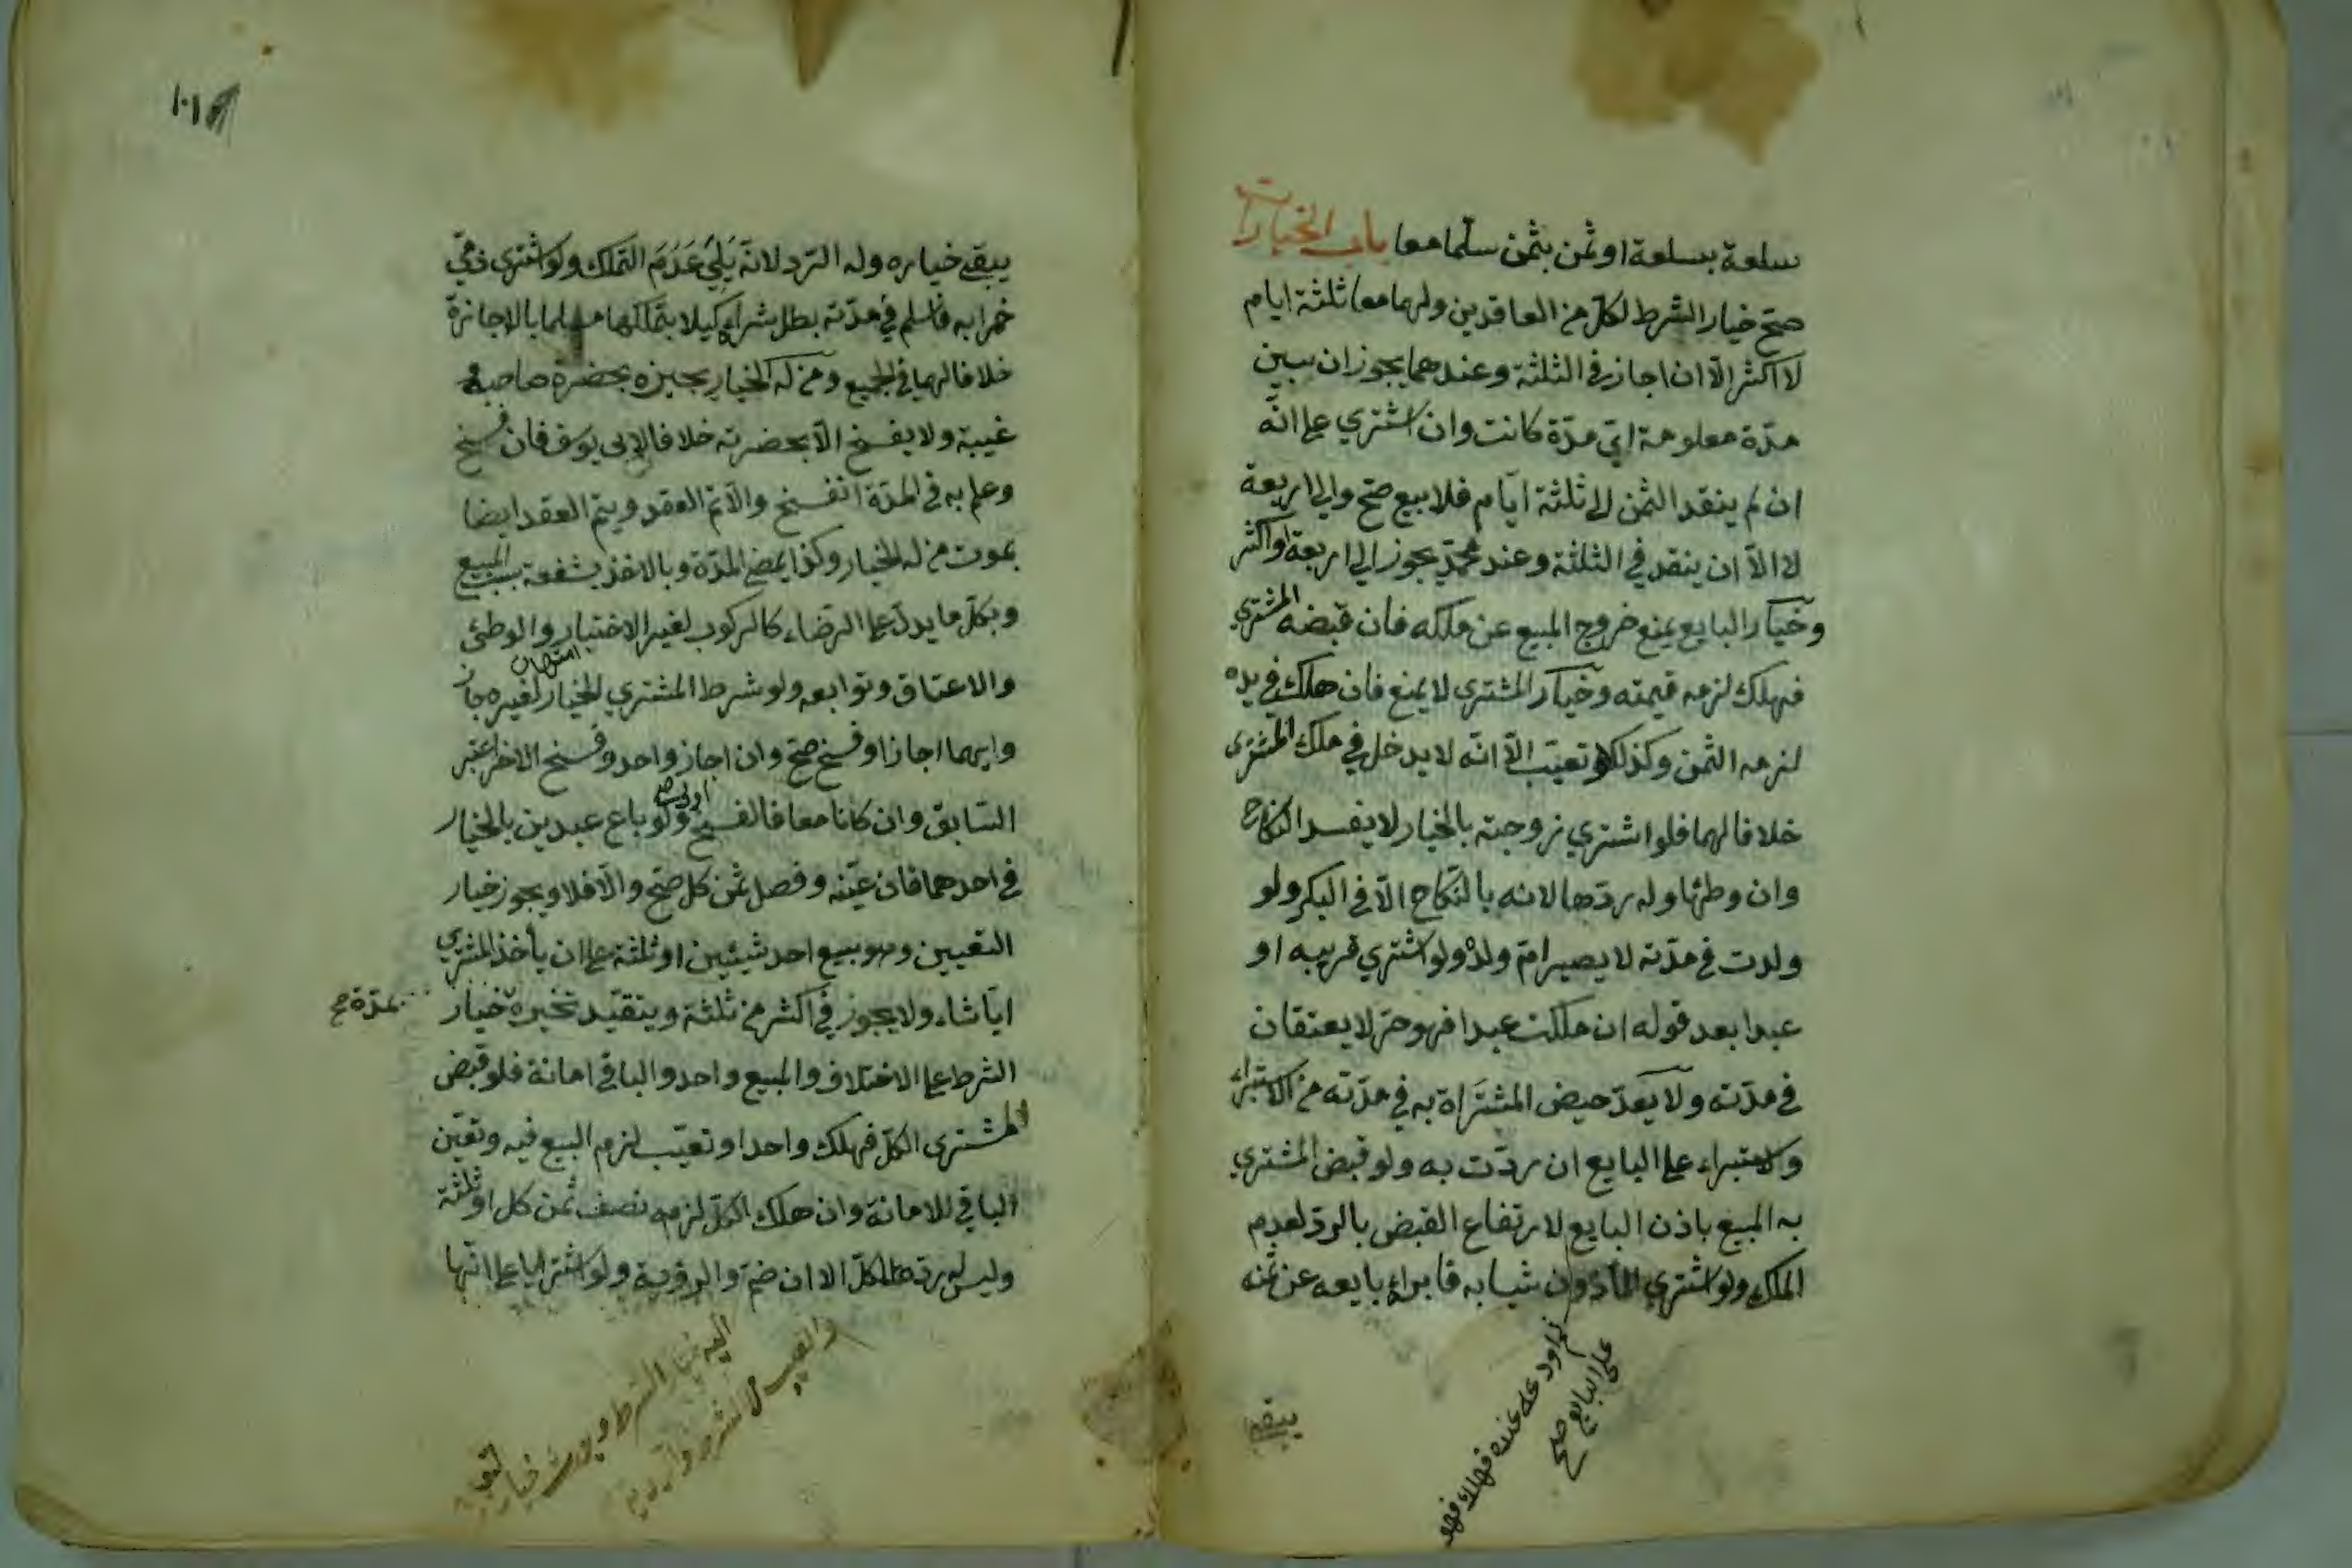 سلعة بسلعة او ثمن بثمن سلما معا باب الخيارات
صح خيار الشرط لكل من العاقدين ولهما معا ثلثة ايام
لا اكثر الا ان اجاز في الثلثة وعندهما يجوز ان بين
مدة معلومة اي مدة كانت وان اشتري على انه
ان لم ينقد الثمن الى ثلثة ايام فلا بيع صح والى اربعة
لا الا ان ينقد في الثلثة وعند محمد يجوز الى اربعة او اكثر
وخيار البايع يمنع خروج المبيع عن ملكه فان قبضه المشتري
فهلك لزمه قيمته وخيار المشتري لا يمنع فان هلك في يده
لزمه الثمن وكذا لو تعيب الا انه لا يدخل في ملك المشتري
خلافا لهما فلو اشتري زوجته بالخيار لا يفسد النكاح
وان وطئها وله ردها لانه بالنكاح الا في البكر ولو
ولدت في مدته لا يصير ام ولد ولو اشتري قريبه او
عبدا بعد قوله ان ملكت عبدا فهو حر لا يعتقان
في مدته ولا يعد حيض المشتراة به في مدته من الاستبراء
ولا استبراء على البايع ان ردت به ولو قبض المشتري
به المبيع باذن البايع لارتفاع القبض بالرد لعدم
الملك ولو اشتري المأذون شيا به فابراه بايعه عن ثمنه
ثم اودعه عنده فهلك فهو
على البايع صح
يبقى
١٠١
يبقى خياره وله الرد لانه يلي عدم التملك ولو اشتري ذمي
خمرا به فاسلم في مدته بطل شراه كيلا يتملكها مسلما بالاجازة
خلافا لهما في الجميع ومن له الخيار يجيزه بحضرة صاحبه و
غيبة ولا يفسخ الا بحضرته خلافا لابي يوسف فان فسخ
وعلم به في المدة انفسخ والا تم العقد ويتم العقد ايضا
بموت من له الخيار وكذا بمضي المدة وبالاخذ بشفعة بسبب المبيع
وبكل ما يدل على الرضاء كالركوب لغير الاختبار والوطئ
امتحان
والاعتاق وتوابعه ولو شرط المشتري الخيار لغيره جاز
وايهما اجازا او فسخ صح وان اجاز واحد وفسخ الاخر اعتبر
السابق وان كانا معا فالفسخ اولى صح ولو باع عبدين بالخيار
في احدهما فان عينه وفصل ثمن كل صح والا فلا ويجوز خيار
التعيين وهو بيع احد شيئين او ثلثة على ان يأخذ المشتري
ايا شاء ولا يجوز في اكثر من ثلثة ويتقيد تخيره خيار
بمدة صح
الشرط على الاختلاف والمبيع واحد والباقي امانة فلو قبض
المشتري الكل فهلك واحد او تعيب لزم البيع فيه وتعين
الباقي للامانة وان هلك الكل لزمه نصف ثمن كل او ثلثه
وليس له رد الكل الا ان ضم والرؤية ولو اشتريا على انهما
اليه خيار الشرط ويورث خيار التعيين
والعيب لا الشرط والرؤية